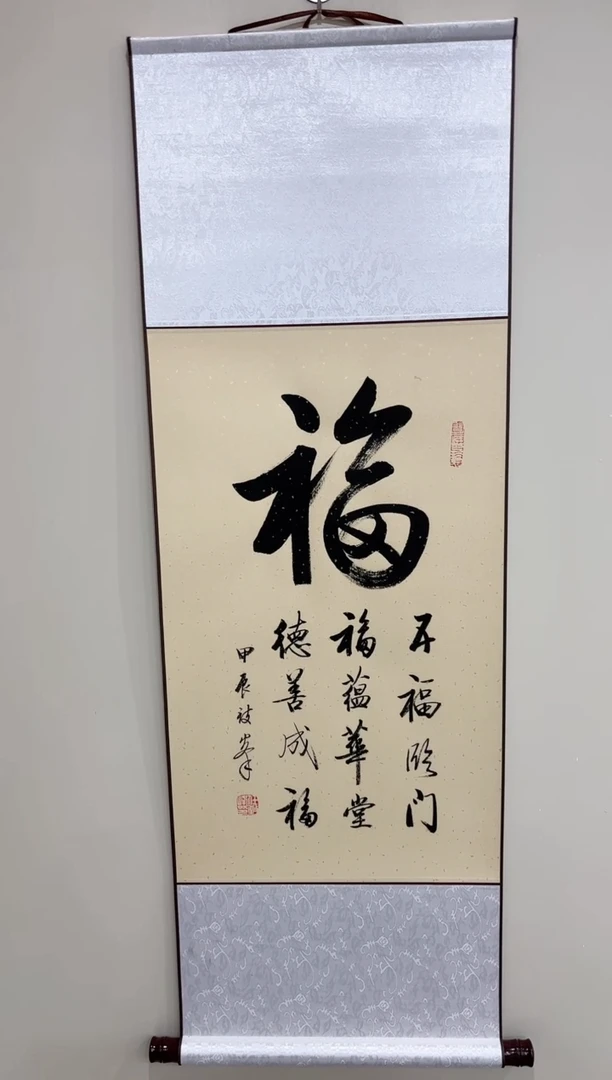 福
五福临门
福蕴华堂
德善成福
甲辰